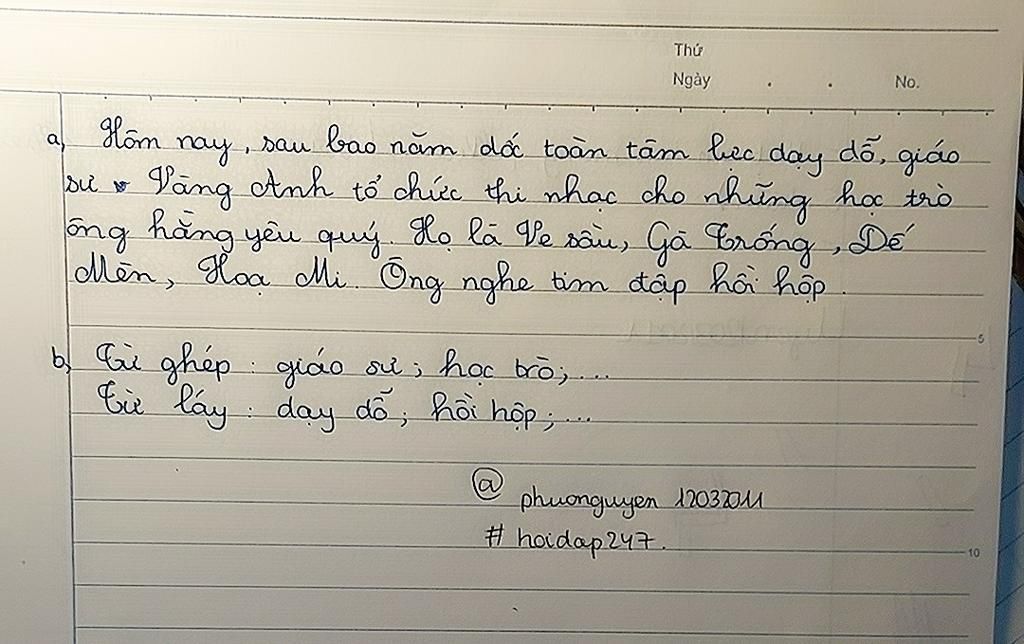 Thứ
Ngày . . No.
a, Hôm nay, sau bao năm dốc toàn tâm lực dạy dỗ, giáo
sư Vàng Anh tổ chức thi nhạc cho những học trò
ông hằng yêu quý. Họ là Ve sầu, Gà Trống, Dế
Mèn, Hoạ Mi. Ông nghe tim đập hồi hộp.
5
b, Từ ghép : giáo sư ; học trò ; ...
Từ láy : dạy dỗ ; hồi hộp ; ...
@ phuonguyen 12032011
# hoidap247.
10